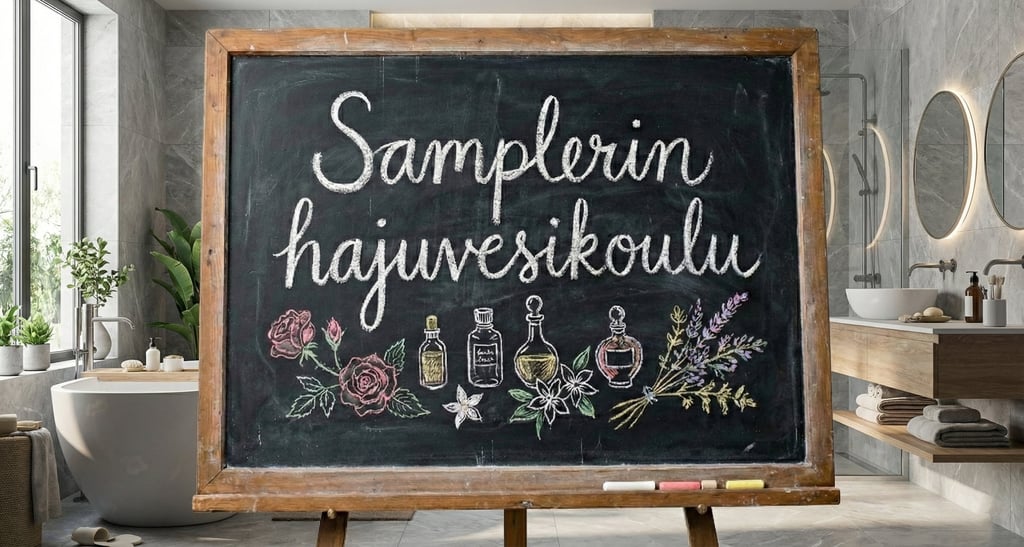 Samplerin
hajuvesikoulu